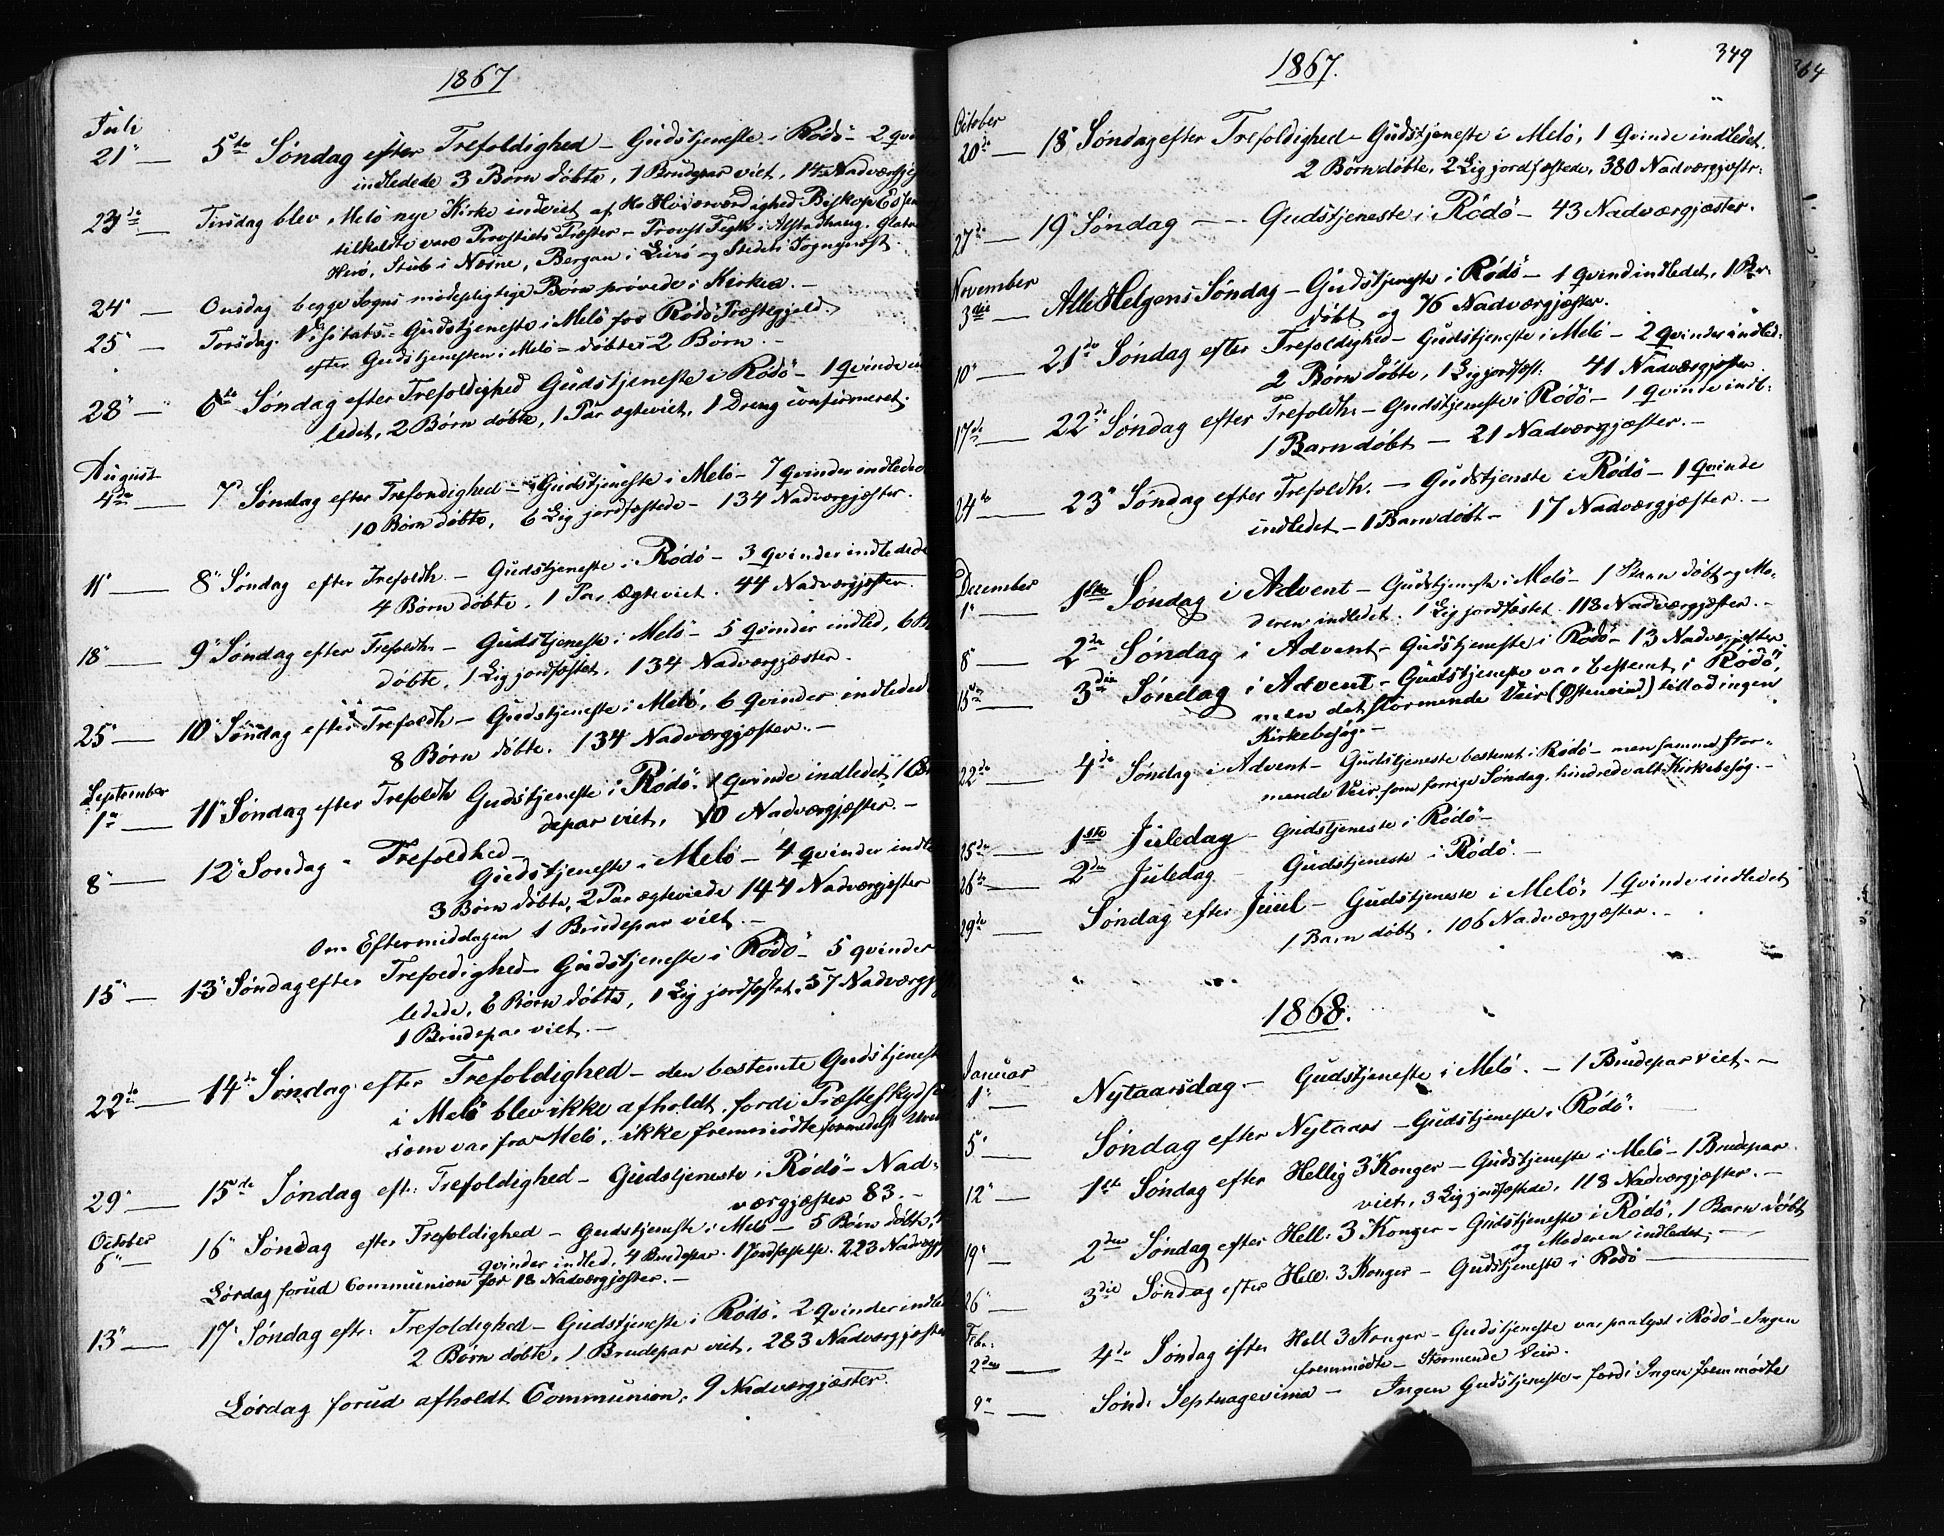 1867
Juli
21" — 5te Søndag efter Trefoldighed – Gudstjeneste i Rödö – 2 qvin
indledede 3 Børn døbte, 1 Brudepar viet, Nadvergjester
23de — Tirsdag blev Melö nye Kirke indviet af Hs Høiærværdighed Biskop Essen
tilkaldte vare Provstiets Præster – Provst i Alstadhaug,
Herö, Stub i Næsne, Bergan i Lurö og Stedets Sognepræst.
24" — Onsdag begge Sogns mödepligtige Børn prövede i Kirken. –
25" — Torsdag. Visitats-Gudstjeneste i Melö for Rödö Præstegjeld.
efter Gudstjenesten i Melö – døbtes 2 Børn. –
28" — 6te Søndag efter Trefoldighed Gudstjeneste i Rödö – 1 qvinde in
ledet, 2 Børn døbte, 1 Par ægteviet, 1 Dreng confirmeret.
August
4de — 7" Søndag efter Trefondighed – Gudstjeneste i Melö – 7 qvinder indlede
10 Børn døbte, 6 Lig jordfæstede – 134 Nadvergjæster.
11" — 8" Søndag efter Trefoldh. – Gudstjeneste i Rödö – 3 qvinder indledede
4 Børn døbte, 1 Par Ægteviet. 44 Nadvergjæster.
18" — 9" Søndag efter Trefoldh. – Gudstjeneste i Melö – 5 qvinder indled, 6 B
døbte, 1 Lig jordfæstet, 134 Nadvergjæster.
25" — 10" Søndag efter Trefoldh – Gudstjeneste i Melö, 6 qvinder indleded
8 Børn døbte. 134 Nadvergjæster. –
September
1" — 11" Søndag efter Trefoldh Gudstjeneste i Rödö. 1 qvinde indledet, 1 Br
depar viet, 10 Nadvergjæster. –
8" — 12" Søndag " Trefoldhed –
Gudstjeneste i Melö – 4 qvinder indle
3 Børn døbte, 2 Par ægteviede 144 Nadvergjæster
Om Eftermiddagen 1 Brudepar viet. –
15" — 13" Søndag efter Trefoedighed – Gudstjeneste i Rödö – 5 qvinder
ledede, 6 Børn døbte, 1 Lig jordfæstet, 57 Nadvergj
1 Brudepar viet. –
22de — 14de Søndag efter Trefoldighed – den bestemte Gudstjenest
i Melö blev ikke afholdt, fordi Præsteskyds
som var fra Melö, ikke fremmödte formedelst
29" — 15de Søndag eft: Trefoldighed – Gudstjeneste i Rödö – Nad-
værgjæster 83. –
October
6" — 16" Søndag efter Trefoldighed – Gudstjeneste i Melö – 5 Børn døbte,
qvinder indled, 4 Brudepar. 1 Jordfæstelse. 223 Nadvergj
Lørdag forud Communion for 18 Nadvergjæster. –
13" — 17" Søndag eft: Trefoldighed – Gudstjeneste i Rödö. 2 qvinder indle
2 Børn døbte, 1 Brudepar viet. 283 Nadvergjæster
Lørdag forud afholdt Communion, 9 Nadvergjæster.
1867.
349
364
October
20de — 18" Søndag efter Trefoldighed – Gudstjeneste i Melö, 1 Qvinde indledet.
2 Børn døbte, 2 Lig jordfæstede, 380 Nadvergjæstr.
27de — 19" Søndag – – Gudstjeneste i Rödö – 43 Nadvergjæster.
November
3die — Alle Helgens Søndag – Gudstjeneste i Rödö – 1 qvind indledet, 1 Br
døbt og 76 Nadvergjæster.
10" — 21de Søndag efter Trefoldighed – Gudstjeneste i Melö – 2 qvinder indled.
2 Børn døbte, 1 Lig jordfæst. 41 Nadvergjæster
17de — 22de Søndag efter Trefoldh. – Gudstjeneste i Rödö – 1 qvinde indl.
1 Barn døbt – 21 Nadvergjæster. –
24de — 23" Søndag efter Trefoldh. – Gudstjeneste i Rödö – 1 Qvinde
indledet – 1 Barn døbt – 17 Nadvergjæster. –
December
1" — 1ste Søndag i Advent – Gudstjeneste i Melö – 1 Barn døbt og Mo-
deren indledet. 1 Lig jordfæstet. 118 Nadvergjæster. –
8" — 2de Søndag i Advent – Gudstjeneste i Rödö – 13 Nadvergjæster
15de — 3die Søndag i Advent – Gudstjeneste var bestemt i Rödö,
men det stormende Veir (Østenvind) tillod ingen
Kirkebesøg. –
22de — 4de Søndag i Advent – Gudstjeneste bestemt i Rödö – men samme stor-
mende Veir som forrige Søndag, hindrede alt Kirkebesøg. –
25de — 1ste Juledag – Gudstjeneste i Rödö –
26de — 2den Juledag – Gudstjeneste i Rödö. –
29de — Søndag efter Juul – Gudstjeneste i Melö, 1 Qvinde indledet
1 Barn døbt. 106 Nadvergjæster. –
1868.
Januar
1" — Nytaarsdag – Gudstjeneste i Melö. – 1 Brudepar viet. –
5" — Søndag efter Nytaars – Gudstjeneste i Rödö.
12" — 1ste Søndag efter Hellig 3 Konger – Gudstjeneste i Melö – 1 Brudepar
viet, 3 Lig jordfæstede, 118 Nadvergjæster. –
19" — 2den Søndag efter Hell: 3 Konger – Gudstjeneste i Rödö, 1 Barn døbt
og Moderen indledet. –
26" — 3die Søndag efter Hell: 3 Konger – Gudstjeneste i Rödö –
Febr:
2den — 4de Søndag efter Hell 3 Konger – Gudstjeneste var paalyst i Rödö – Ingen
fremmödte – Stormende Veir.
9" — Sønd: Septuagesima – Ingen Gudstjeneste – fordi Ingen fremmödte